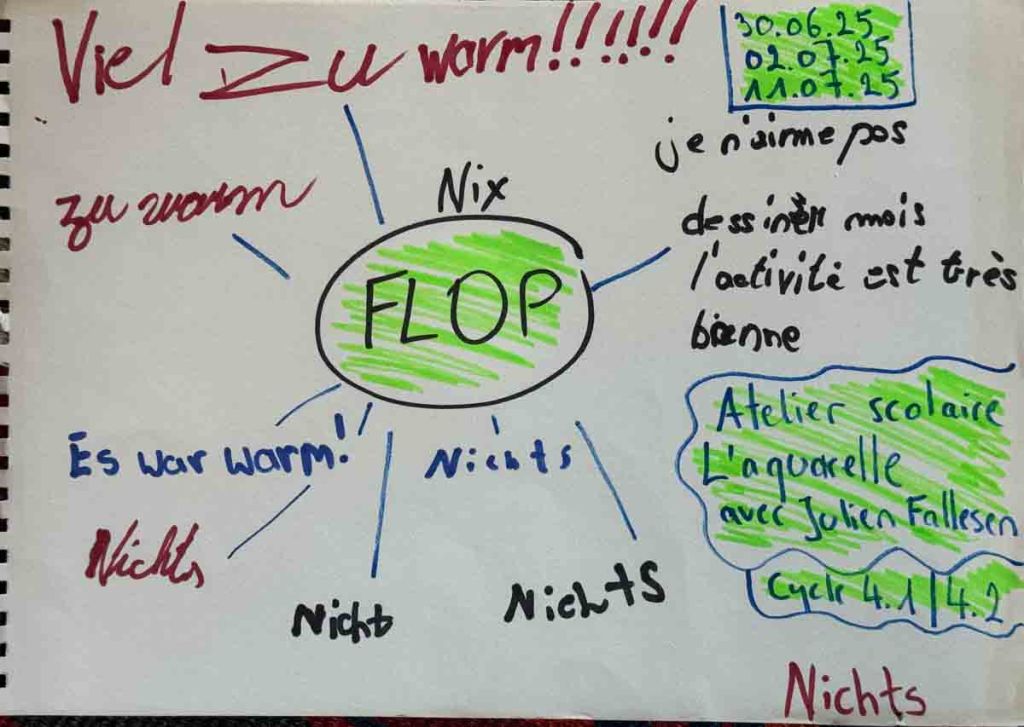 Viel zu warm!!!!!!
30.06.25
02.07.25
11.07.25
je n'aime pas
dessiner mais
l'activité est très
bienne
zu warm
Nix
FLOP
Es war warm!
Nichts
Nichts
Nicht
Nichts
Atelier scolaire
L'aquarelle
avec Julien Fallesen
Cycle 4.1 | 4.2
Nichts